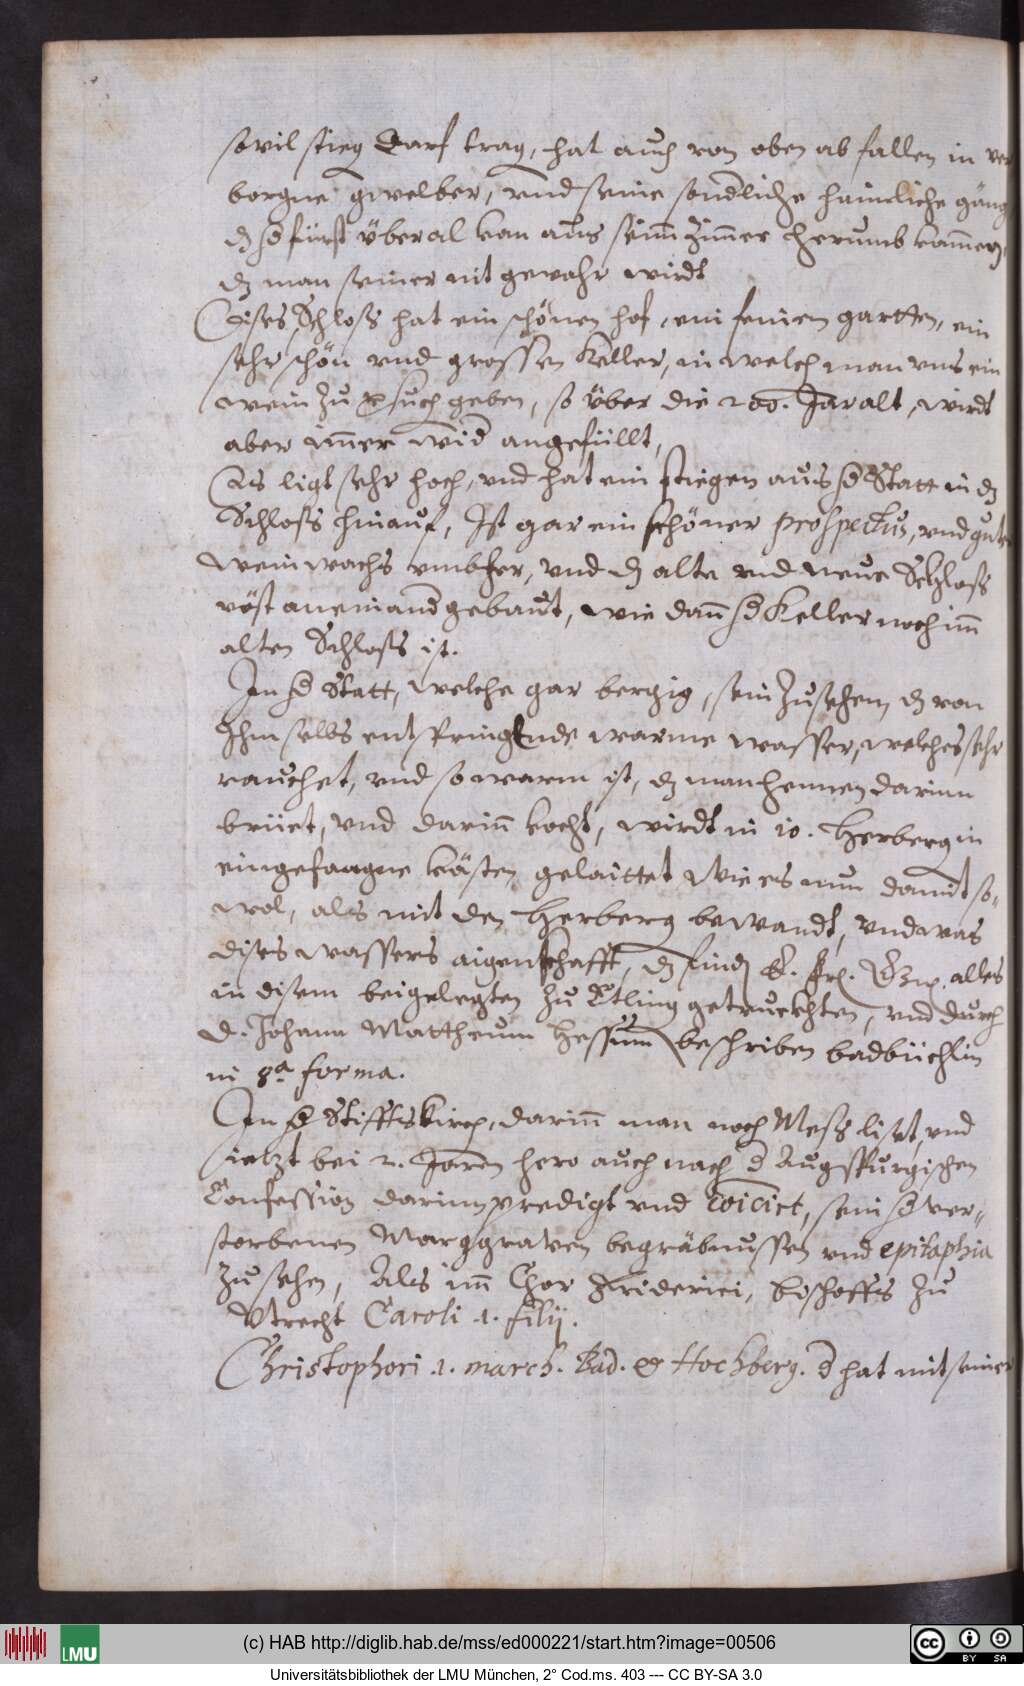 sovil stieg darf trag, hat auch von oben ab fallen in ver
borgne gwelber, vnd seine sondliche haimliche gäng
dz d fürst überal kan aus seim Zimmer herumb kommen,
dz man seiner nit gewahr wirdt
Dises Schloss hat ein schönen hof, ein feinen gartten, ein
sehr schön vnd grossen Keller, in welch man vns ein
wein zu versuch geben, so über die 200. Jar alt, wirdt
aber immer wid angefüllt,
Es ligt sehr hoch, vnd hat ein stiegen aus d Statt in dz
Schloss hinauf, Ist gar ein schöner prospectus, vnd gute
wein wachs vmbher, vnd dz alte vnd neue Schloss
vöst aneinand gebaut, wie dann d Keller noch im
alten Schloss ist.
In d Statt, welche gar bergig, sein zusehen, dz von
Ihm selbs entspringende warme wasser, welches sehr
rauchet, vnd so warm ist, dz man hennen darinn
brüet, vnd darinn kocht, wirdt in 10. Herberg in
eingefangne kästen gelaittet Wie es nun damit so-
wol, als mit den Herberg bewandt, vnd was
dises wassers aigenschafft, dz finden E. Frl. alles
in disem beigelegten zu Etling getruckhten, vnd durch
D. Johann Mattheum Hessum beschriben badbüchlin
in 8a forma.
In d Stifftskirch, darinn man noch Mess list, vnd
jetzt bei 2. Jaren hero auch nach d Augspurgischen
Confession darinn predigt vnd coicirt, sein d ver-
storbenen Marggraven begräbnussen vnd epitaphia
zu sehen, Als im Chor Friderici, bischoffs zu
Vtrecht Caroli 1. filij.
Christophori .1. march. Bad. et Hochberg. d hat mit seiner
(c) HAB http://diglib.hab.de/mss/ed000221/start.htm?image=00506
LMU
cc BY SA
Universitätsbibliothek der LMU München, 2° Cod.ms. 403 --- CC BY-SA 3.0